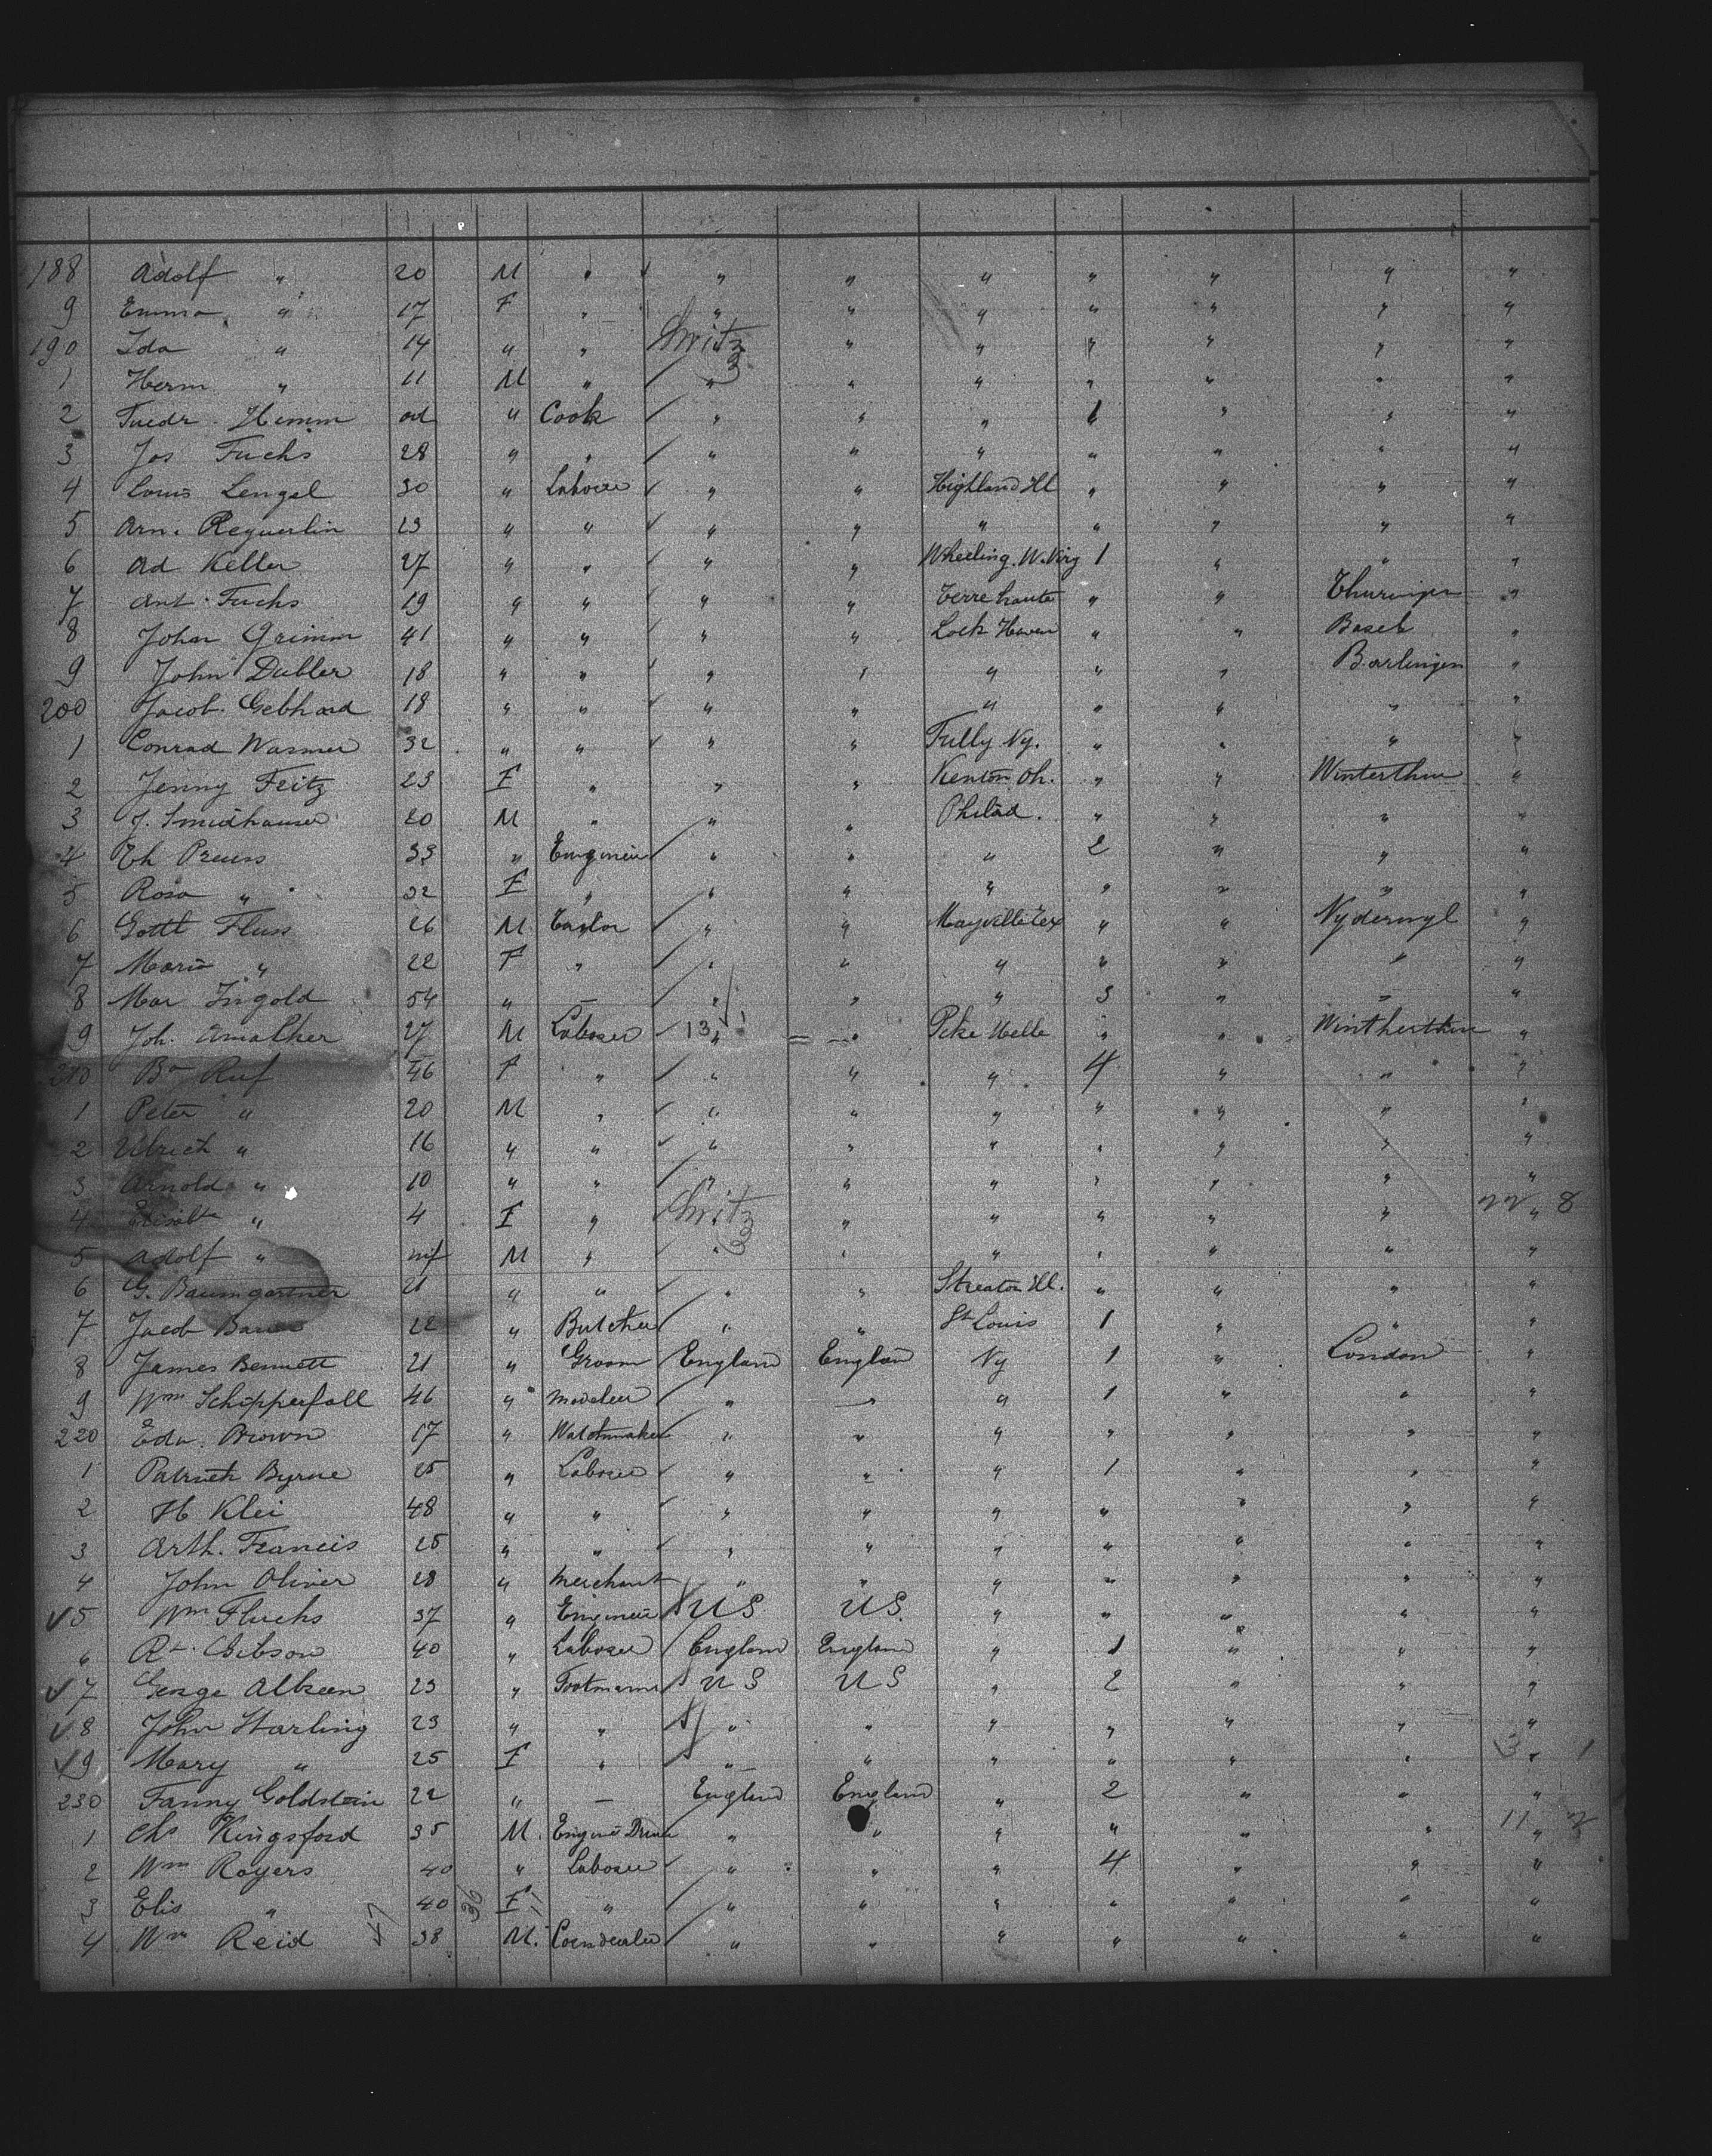 188 Adolf " 20 M " " " " " " " "
9 Emma " 17 F " " " " " " " "
190 Ida " 14 " " Switz " " " " " "
1 Herm " 11 M " " " " " " " "
2 Friedr. Hemm " Cook " " " 1 " " "
3 Jos Fuchs 28 " " " " " " " " "
4 Louis Lengel 30 " Laborer " " Highland Ill " " " "
5 Arn. Reguerlin 23 " " " " " " " " "
6 Ad Keller 27 " " " " Wheeling. W. Virg 1 " " "
7 Ant. Fuchs 19 " " " " Terre haute " " "
8 Johan Grimm 41 " " " " Lock Haven " " Basel "
9 John Dubler 18 " " " " " " " Barlingen "
200 Jacob. Gebhard 18 " " " " " " " " "
1 Conrad Wasmer 32 " " " " Fully Ny. " " " "
2 Jenny Feitz 23 F " " " Kenton Oh. " " Winterthur "
3 J. Smidhauser 20 M " " " Philad. " " " "
4 Th Preuss 33 " Engineer " " " 2 " " "
5 Rosa " 32 F " " " " " " " "
6 Gottl Fluss 26 M Taylor " " Mayville Tex " " Nyderwyl "
7 Maria " 22 F " " " " " " " "
8 Mar Ingold 54 " — " " " 3 " " "
9 Joh. Amacher 27 M Laborer 13 " " " " Wintherthur "
210 Ba Ruf 46 F " " " " 4 " " "
1 Peter " 20 M " " " " " " " "
2 Ulrich " 16 " " " " " " " " "
3 Arnold " 10 " " " " " " " " "
4 Elisabta " 4 F " Switz " " " " " " 8
5 Adolf " inf M " " " " " " " "
6 G. Baumgartner 21 " " " " Streator Ill. " " " "
7 Jacob Bauer 22 " Butcher " " St Louis 1 " " "
8 James Bennett 21 " Groom England England Ny 1 " London "
9 Wm Schipperfall 46 " Modeler " " " 1 " " "
220 Edw. Brown 17 " Watchmaker " " " " " " "
1 Patrick Byrne 25 " Laborer " " " 1 " " "
2 H Klei 48 " " " " " " " " "
3 Arth. Francis 25 " " " " " " " " "
4 John Oliver 28 " Merchant " " " " " " "
5 Wm Fluchs 37 " Engineer U S U S. " " " " "
" Rt. Gibson 40 " Laborer England England " 1 " " "
7 George Albeen 23 " Footmann U S U S " 2 " " "
8 John Starling 23 " " " " " " " " "
9 Mary " 25 F " " " " " " " 3 1
230 Fanny Goldstein 22 " — England England " 2 " " "
1 Chs Kingsford 35 M. Engine Driver " " " " " " 11 " 2
2 Wm Rogers 40 " Laborer " " " 4 " " "
3 Elis " 40 36 F " " " " " " " "
4 Wm Reid 47 38 M. Corndealer " " " " " " "